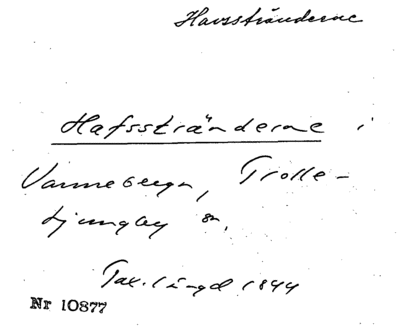 Havsstränderne
Hafsstränderne i
Vanneberga, Trolle-
Ljungby sn.
Tax. längd 1844
Nr 10877